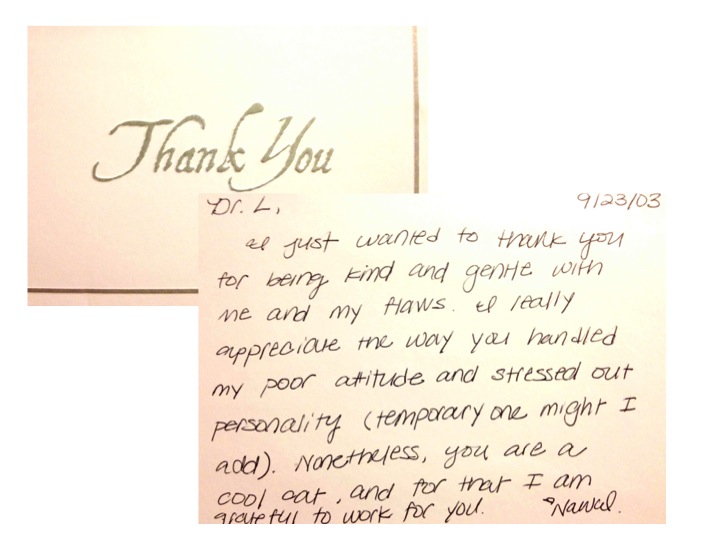 Thank You
Dr. L, 9/23/03
I just wanted to thank you
for being kind and gentle with
me and my flaws. I really
appreciate the way you handled
my poor attitude and stressed out
personality (temporary one might I
add). Nonetheless, you are a
cool cat, and for that I am
grateful to work for you. Nawal.